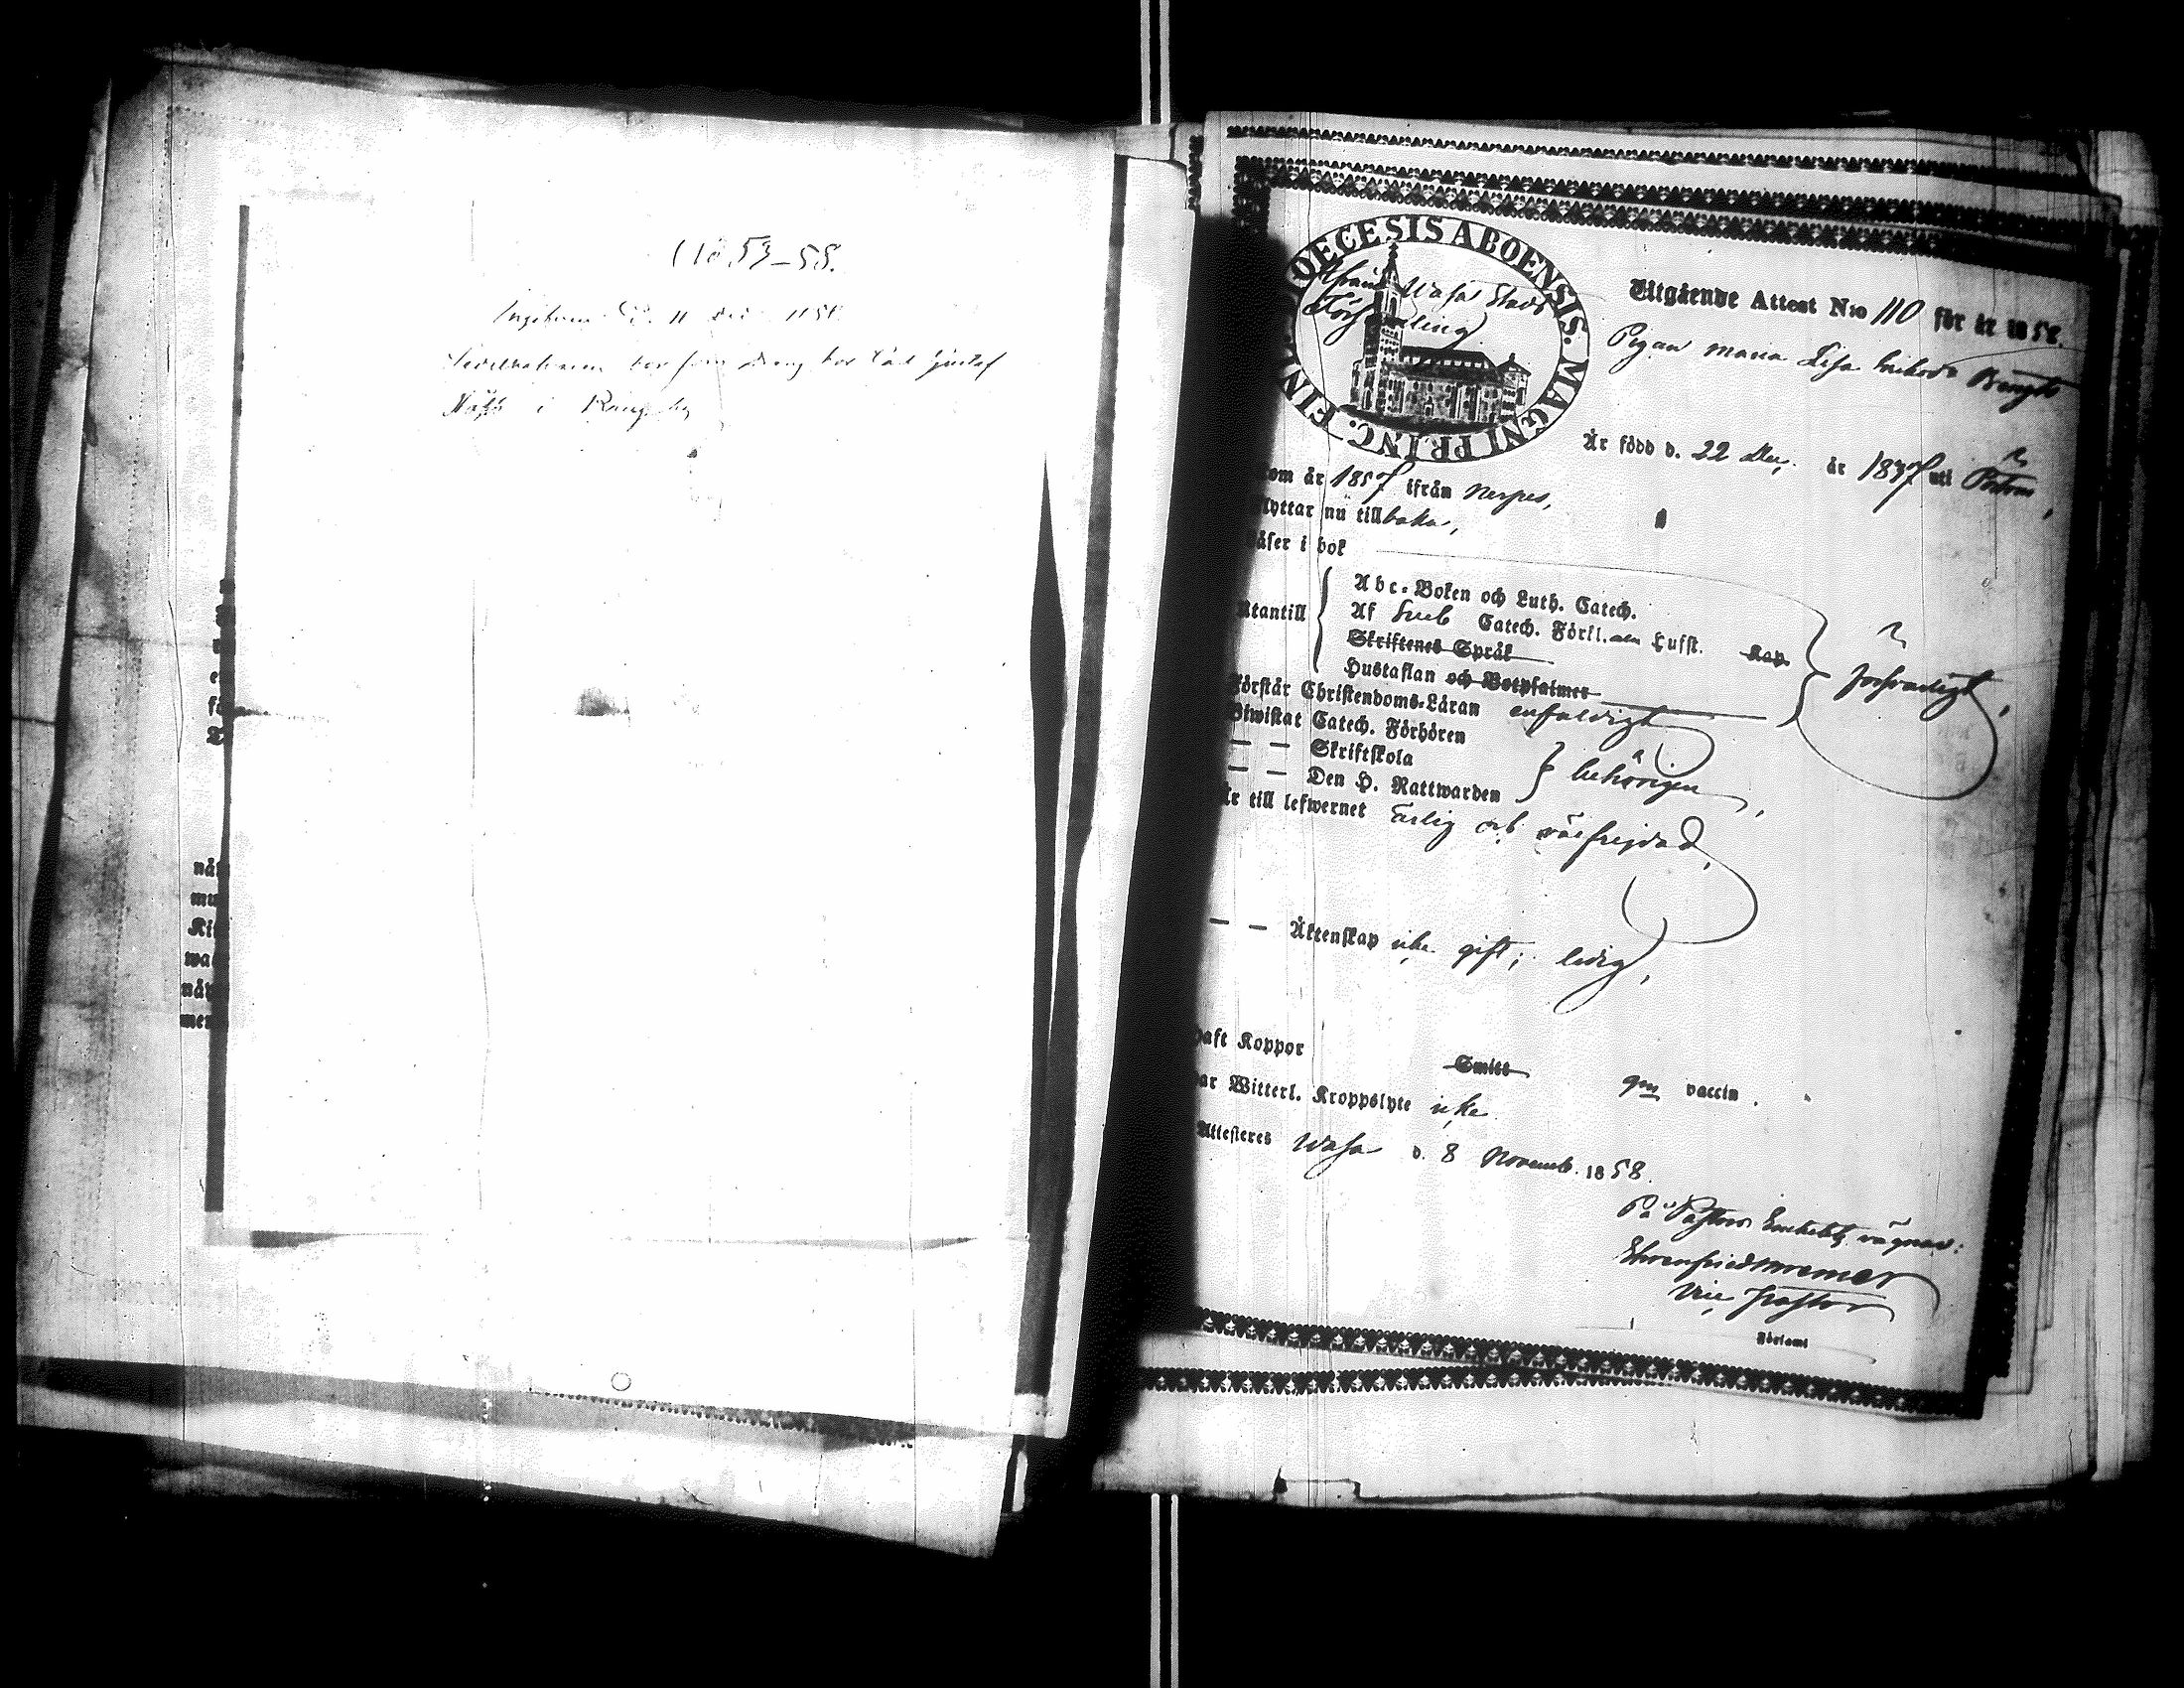 (1853–58.
11 1858
hos Carl Gustaf
i
DIOECESIS ABOENSIS. MAGNI PRINC. FINL
ifrån Wasa Stads
Församling
Utgående Attest N:o 110 för år 1858.
Pigan Maria Lisa Eriksdr Bengts
Är född d. 22 Dec. år 1837 uti
om år 1857 ifrån Nerpes,
lyttar nu tillbaka,
äser i bok
Utantill
Abc-Boken och Luth. Catech.
Af Sveb Catech. Förkl. Lufft. Kap.
Skriftenes Språk
Hustaflan och Botpsalmer
försvarligt,
Förstår Christendoms-Läran enfaldigt
Biwistat Catech. Förhören
— — Skriftskola
— — Den H. Nattwarden
behörigen,
Är till lefwernet ärlig och välfrejdad,
— — Äktenskap icke gift; ledig,
haft Koppor Smitt gm vaccin.
ar Witterl. Kroppslyte icke.
Attesteres Wasa d. 8 Novemb. 1858.
På Pastors Embetets vägnar:
Vice Pastor
nå
mu
Ki
wa
nå
me